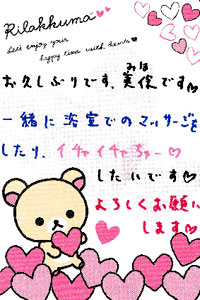 Rilakkuma
Let's enjoy your
happy time with hearts
お久しぶりです、美保です♡
みほ
一緒に浴室でのマッサージを
したり、イチャイチャちゅー♡
したいです♡
よろしくお願い
します♡